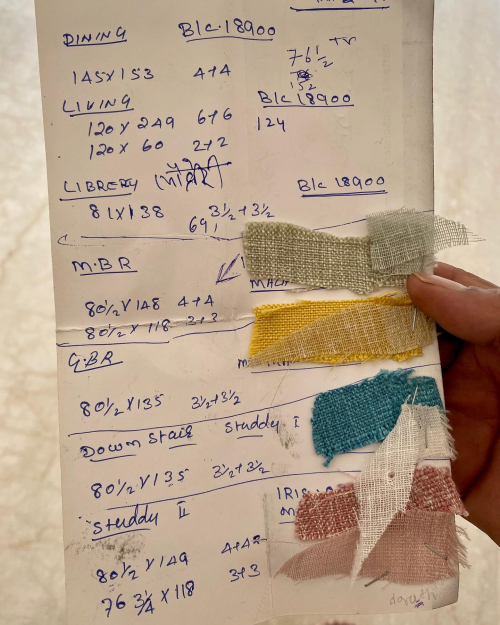 DINING B/C.18900
76 1/2 TV
152
145x153 4+4
LIVING B/C 18900
120 x 249 6+6 124
120 x 60 2+2
LIBRERY B/C 18900
81x138 3 1/2 + 3 1/2
69
M.BR
80 1/2 x 148 4+4
80 1/2 x 118 3+3
G.BR
80 1/2 x 135 3 1/2 + 3 1/2
Down Stair Studdy I
80 1/2 x 135 3 1/2 + 3 1/2
IRIS
Studdy II
80 1/2 x 149 4+4
76 3/4 x 118 3+3